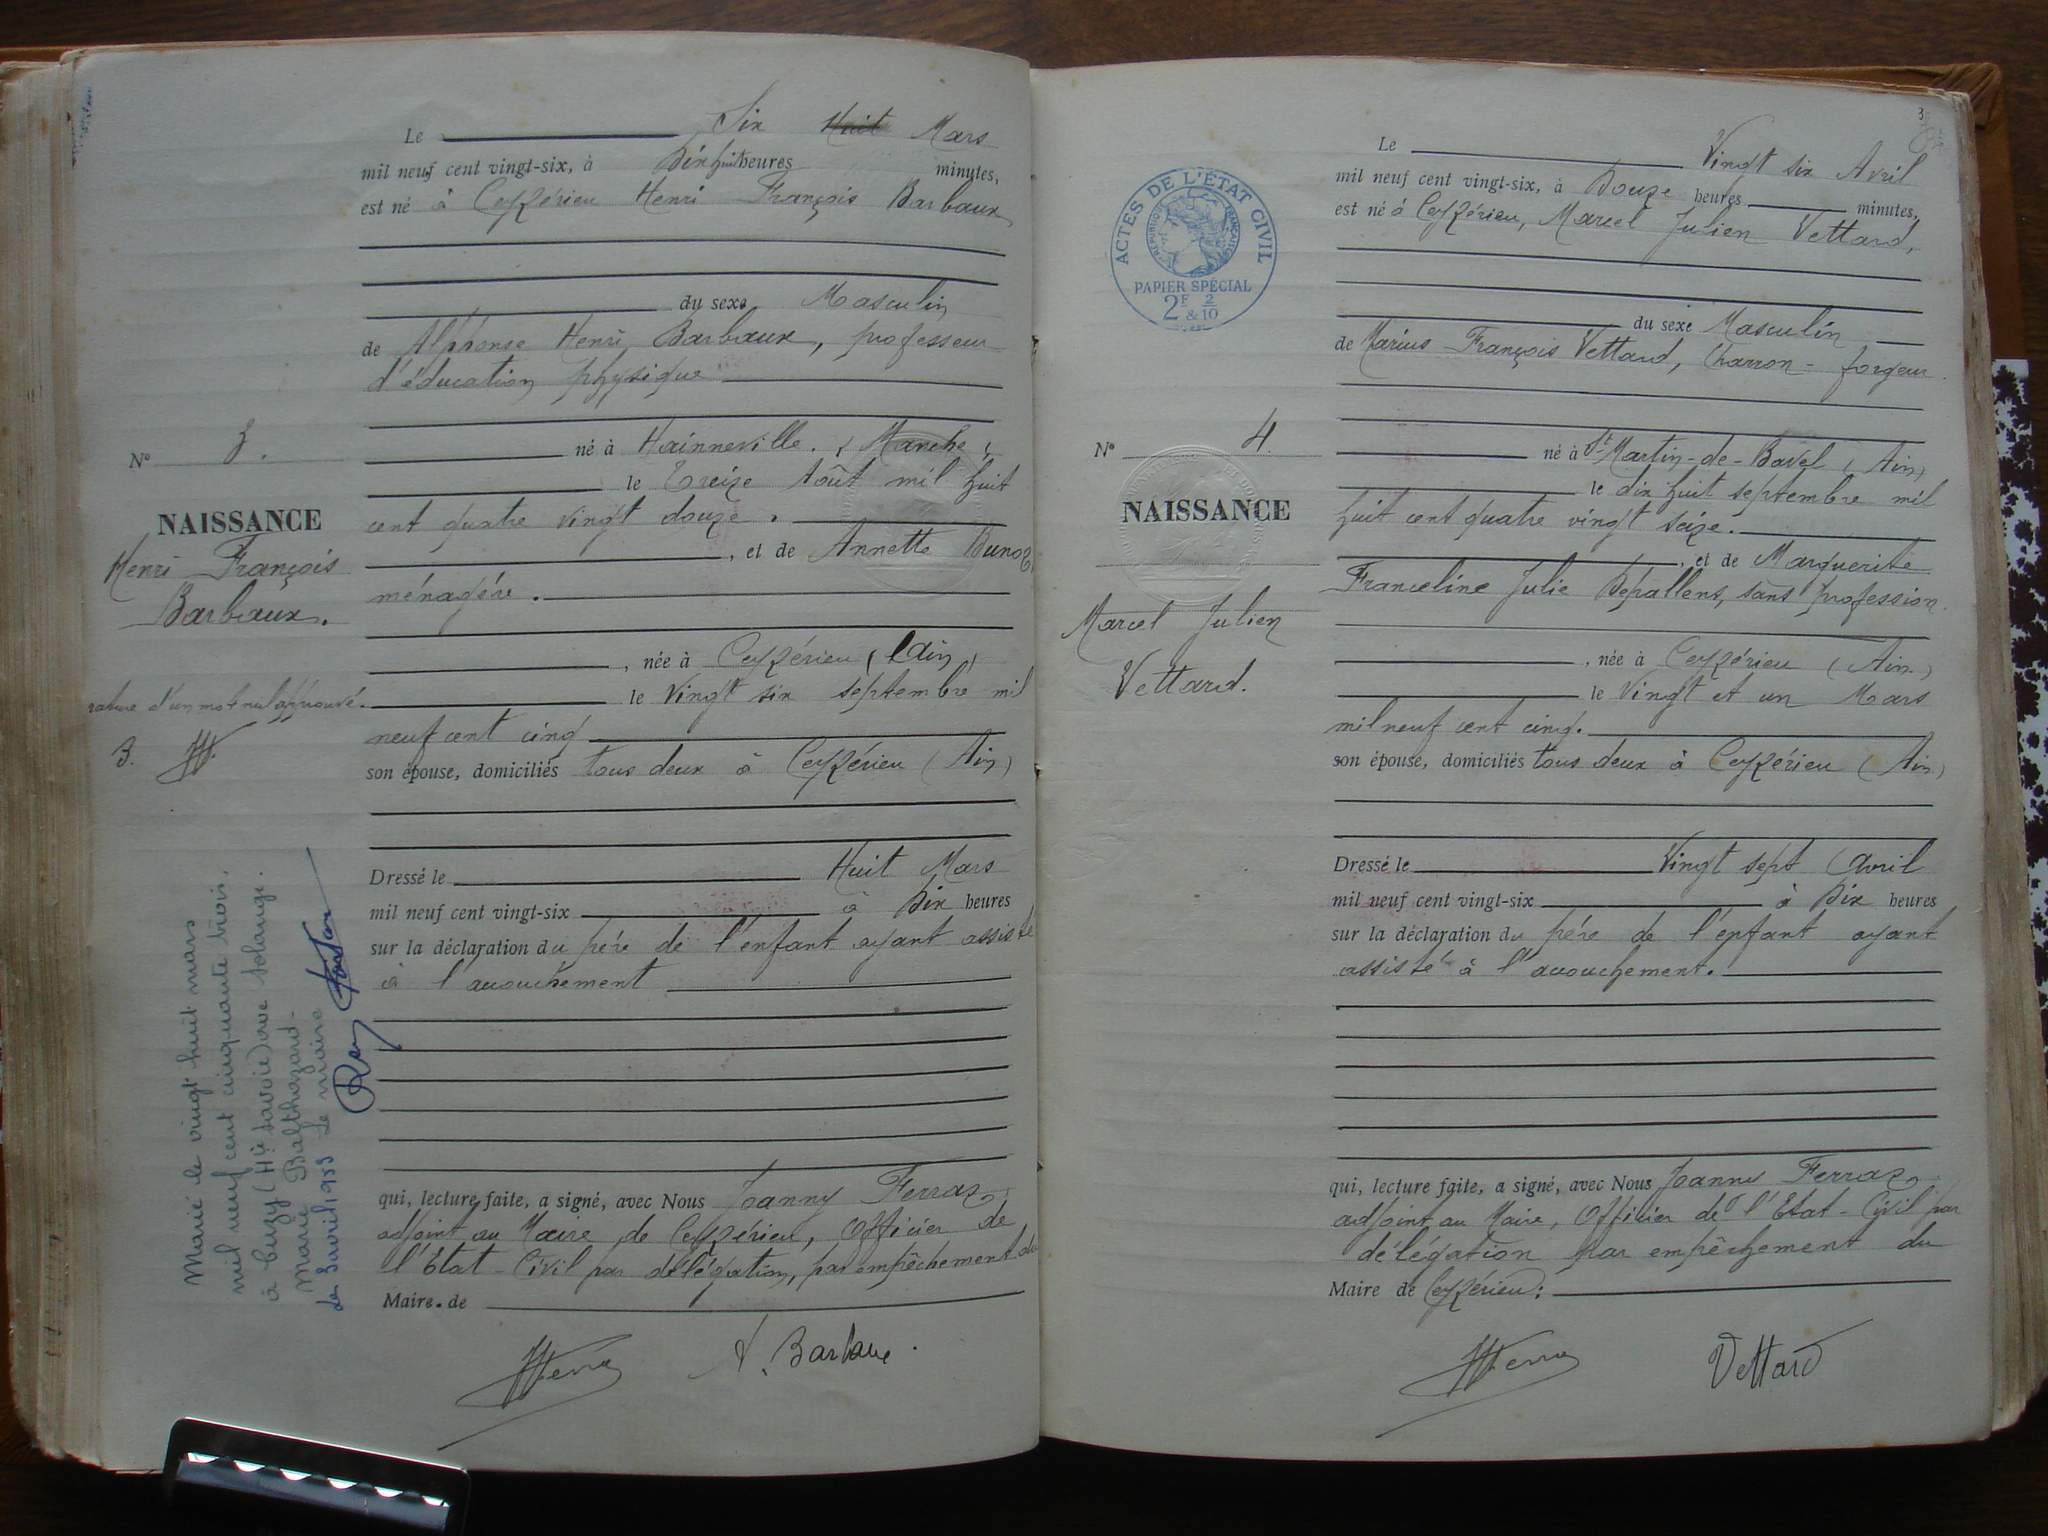 Le Six Huit Mars
mil neuf cent vingt-six, à Dix huit heures minutes,
est né à Ceyzérieu Henri François Barbaux
du sexe Masculin
de Alphonse Henri Barbaux, professeur
d'éducation physique
né à Hainneville. (Manche)
le Treize Août mil huit
cent quatre vingt douze.
, et de Annette Bunoz,
ménagère.
, née à Ceyzérieu (Ain)
le Vingt six septembre mil
neuf cent cinq
son épouse, domiciliés tous deux à Ceyzérieu (Ain)
Dressé le Huit Mars
mil neuf cent vingt-six à Dix heures
sur la déclaration du père de l'enfant ayant assisté
à l'accouchement
qui, lecture faite, a signé, avec Nous Joanny Ferraz,
adjoint au Maire de Ceyzérieu, Officier de
l'Etat-Civil par délégation, par empêchement du
Maire de
A. Barbaux.
N° 3.
NAISSANCE
Henri François
Barbaux.
rature d'un mot nul approuvé.
3.
Marié le vingt huit mars
mil neuf cent cinquante trois,
à (Hte Savoie) avec Solange
Marie Balthazard.
Le avril 1953 Le maire
3
ACTES DE L'ÉTAT CIVIL
RÉPUBLIQUE FRANÇAISE
PAPIER SPÉCIAL
2F 2
& 10
Le Vingt six Avril
mil neuf cent vingt-six, à Douze heures minutes,
est né à Ceyzérieu, Marcel Julien Vettard,
du sexe Masculin
de Marius François Vettard, Charron-forgeur
né à St Martin-de-Bavel (Ain)
le dix huit septembre mil
huit cent quatre vingt seize.
, et de Marguerite
Franceline Julie Depallens, sans profession.
, née à Ceyzérieu (Ain)
le Vingt et un Mars
mil neuf cent cinq.
son épouse, domiciliés tous deux à Ceyzérieu (Ain)
Dressé le Vingt sept Avril
mil neuf cent vingt-six à Dix heures
sur la déclaration du père de l'enfant ayant
assisté à l'accouchement.
qui, lecture faite, a signé, avec Nous Joanny Ferraz
adjoint au Maire, Officier de l'Etat-Civil par
délégation par empêchement du
Maire de Ceyzérieu:
Vettard
N° 4.
NAISSANCE
Marcel Julien
Vettard.